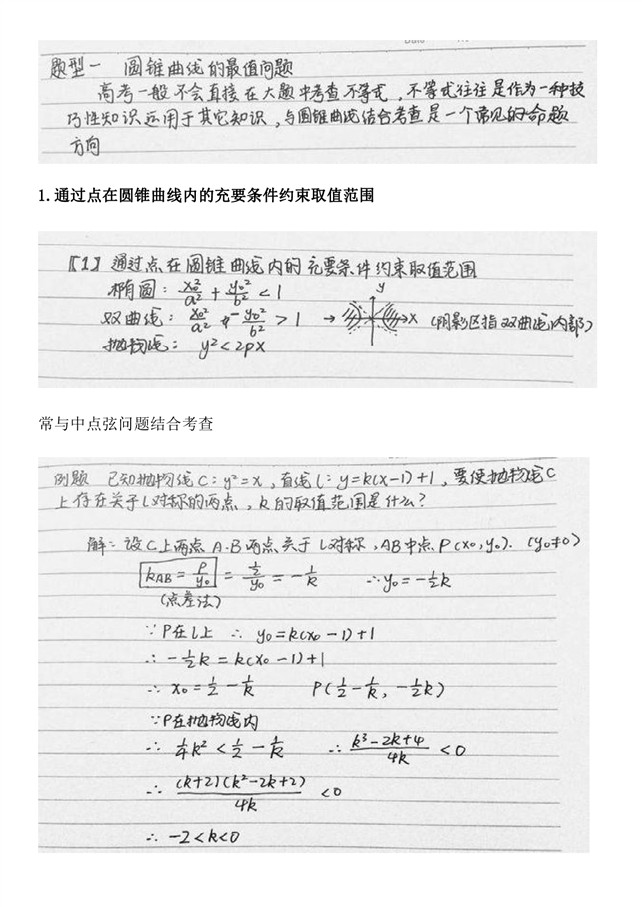 题型一 圆锥曲线的最值问题
高考一般不会直接在大题中考查不等式，不等式往往是作为一种技
巧性知识运用于其它知识，与圆锥曲线结合考查是一个常见的命题
方向
1.通过点在圆锥曲线内的充要条件约束取值范围
【1】通过点在圆锥曲线内的充要条件约束取值范围
椭圆：x₀²/a² + y₀²/b² < 1
双曲线：x₀²/a² - y₀²/b² > 1 → y x (阴影区指双曲线内部)
抛物线：y² < 2px
常与中点弦问题结合考查
例题 已知抛物线C：y²=x，直线l：y=k(x-1)+1，要使抛物线C
上存在关于l对称的两点，k的取值范围是什么？
解：设C上两点A.B两点关于l对称，AB中点P(x₀,y₀).（y₀≠0）
k_AB = P/y₀ = ½/y₀ = -1/k ∴y₀=-½k
(点差法)
∵P在l上 ∴ y₀=k(x₀-1)+1
∴ -½k = k(x₀-1)+1
∴ x₀=½-1/k P(½-1/k, -½k)
∵P在抛物线内
∴ ¼k² < ½ - 1/k ∴ (k³-2k+4)/4k < 0
∴ (k+2)(k²-2k+2)/4k < 0
∴ -2<k<0